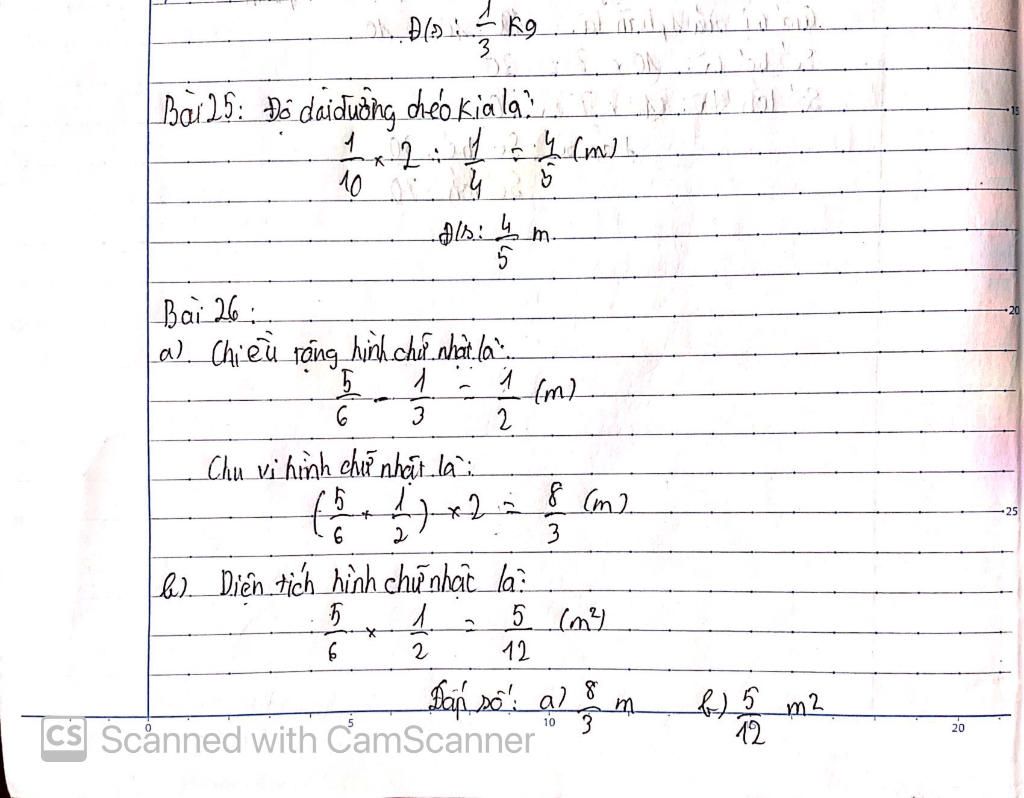 Đ/s: 1/3 kg
Bài 25: Độ dài đường chéo kia là:
1/10 × 2 : 1/4 = 4/5 (m)
Đ/s: 4/5 m
Bài 26:
a) Chiều rộng hình chữ nhật là:
5/6 - 1/3 = 1/2 (m)
Chu vi hình chữ nhật là:
(5/6 + 1/2) × 2 = 8/3 (m)
b) Diện tích hình chữ nhật là:
5/6 × 1/2 = 5/12 (m²)
Đáp số: a) 8/3 m b) 5/12 m²
15
20
25
0 5 10 20
CS Scanned with CamScanner